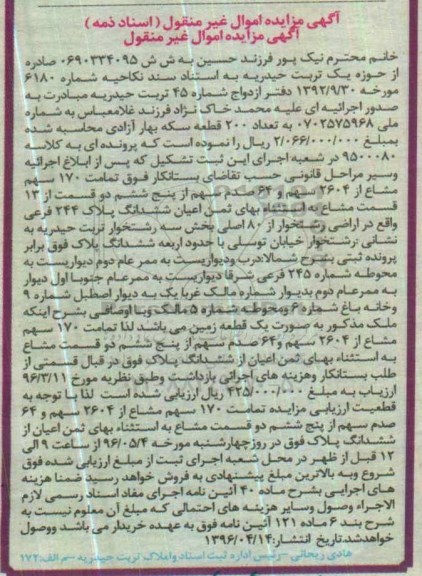 آگهی مزایده اموال غیر منقول ( اسناد ذمه )
آگهی مزایده اموال غیر منقول
خانم محترم نیک پور فرزند حسین به ش ش ۰۶۹۰۳۳۴۰۹۵ صادره
از حوزه یک تربت حیدریه به استناد سند نکاحیه شماره ۶۱۸۰
مورخه ۱۳۹۲/۹/۳۰ دفتر ازدواج شماره ۴۵ تربت حیدریه مبادرت به
صدور اجرائیه ای علیه محمد خاک نژاد فرزند غلامعباس به شماره
ملی ۰۷۰۲۵۷۵۹۶۸ به تعداد ۲۰۰ قطعه سکه بهار آزادی محاسبه شده
بمبلغ ۲/۰۶۶/۰۰۰/۰۰۰ ریال را نموده است که پرونده ای به کلاسه
۹۵۰۰۰۸۰ در شعبه اجرای این ثبت تشکیل که پس از ابلاغ اجرائیه
وسیر مراحل قانونی حسب تقاضای بستانکار فوق تمامت ۱۷۰ سهم
مشاع از ۲۶۰۴ سهم و ۶۴ صدم سهم از پنج ششم دو قسمت از ۱۳
قسمت مشاع به استثناء بهای ثمن اعیان ششدانگ پلاک ۲۴۴ فرعی
واقع در اراضی رشتخوار از ۸۰ اصلی بخش سه رشتخوار تربت حیدریه به
نشانی :رشتخوار خیابان توسلی با حدود اربعه ششدانگ پلاک فوق برابر
پرونده ثبتی بشرح شمالا:درب ودیواریست به ممر عام دوم دیواریست به
محوطه شماره ۲۴۵ فرعی شرقا دیواریست به ممر عام جنوبا اول دیوار
به ممر عام دوم بدیوار شماره مالک غربا یک به دیوار اصطبل شماره ۹
وخانه باغ شماره ۶ ومحوطه شماره ۵ مالک وبا اوصافی بشرح اینکه
ملک مذکور به صورت یک قطعه زمین می باشد لذا تمامت ۱۷۰ سهم
مشاع از ۲۶۰۴ سهم و۶۴ صدم سهم از پنج ششم دو قسمت مشاع
به استثناء بهای ثمن اعیان از ششدانگ پلاک فوق در قبال قسمتی از
طلب بستانکار وهزینه های اجرائی بازداشت وطبق نظریه مورخ ۹۶/۳/۱۱
ارزیاب به مبلغ ۴۲۵/۰۰۰/۰۰۰ ریال ارزیابی شده است لذا با توجه به
قطعیت ارزیابی مزایده تمامت ۱۷۰ سهم مشاع از ۲۶۰۴ سهم و ۶۴
صدم سهم از پنج ششم دو قسمت مشاع به استثناء بهای ثمن اعیان از
ششدانگ پلاک فوق در روزچهارشنبه مورخه ۹۶/۰۵/۴ از ساعت ۹ الی
۱۲ قبل از ظهر در محل شعبه اجرای ثبت از مبلغ ارزیابی شده فوق
شروع وبه بالاترین مبلغ پیشنهادی به فروش خواهد رسید ضمنا هزینه
های اجرایی بشرح ماده ۴۰ آئین نامه اجرای مفاد اسناد رسمی لازم
الاجراء وصول وسایر هزینه های احتمالی که مبلغ آن معلوم نیست به
شرح بند ۶ ماده ۱۲۱ آئین نامه فوق به عهده خریدار می باشد ووصول
خواهدشد.تاریخ انتشار:۱۳۹۶/۰۴/۱۴
هادی ریحانی -رئیس اداره ثبت اسناد واملاک تربت حیدریه -م الف:۱۷۲